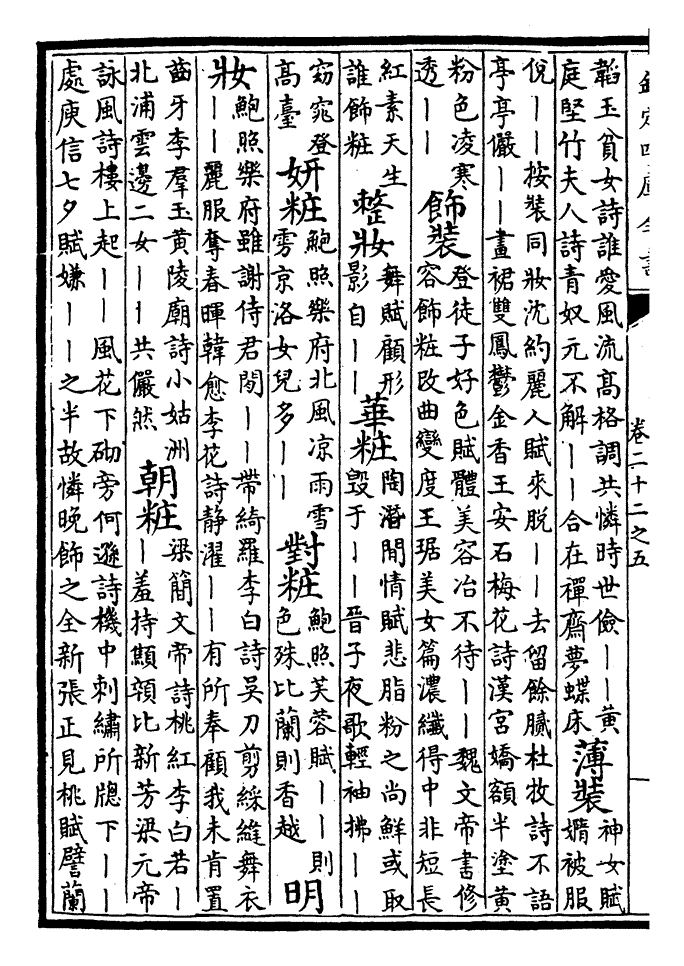 欽定四庫全書
卷二十二之五
韜玉貧女詩誰愛風流高格調共憐時世儉丨丨黃
庭堅竹夫人詩青奴元不解丨丨合在禪齋夢蝶床
薄裝
神女賦
嫷被服
侻丨丨按裝同妝沈約麗人賦來脫丨丨去留餘膩杜牧詩不語
亭亭儼丨丨畫裙雙鳳鬱金香王安石梅花詩漢宮嬌額半塗黃
粉色凌寒
透丨丨
飾裝
登徒子好色賦體美容冶不待丨丨魏文帝書修
容飾粧改曲變度王琚美女篇濃纖得中非短長
紅素天生
誰飾粧
整妝
舞賦顧形
影自丨丨
華粧
陶潛閒情賦悲脂粉之尚鮮或取
毀于丨丨晉子夜歌輕袖拂丨丨
窈窕登
高臺
妍粧
鮑照樂府北風凉雨雪
雱京洛女兒多丨丨
對粧
鮑照芙蓉賦丨丨則
色殊比蘭則香越
明
妝
鮑照樂府雖謝侍君閒丨丨帶綺羅李白詩吳刀剪綵縫舞衣
丨丨麗服奪春暉韓愈李花詩静濯丨丨有所奉顧我未肯置
齒牙李羣玉黃陵廟詩小姑洲
北浦雲邊二女丨丨共儼然
朝粧
梁簡文帝詩桃紅李白若丨
丨羞持顦顇比新芳梁元帝
詠風詩樓上起丨丨風花下砌旁何遜詩機中刺繡所牕下丨丨
處庾信七夕賦嫌丨丨之半故憐晚飾之全新張正見桃賦譬蘭